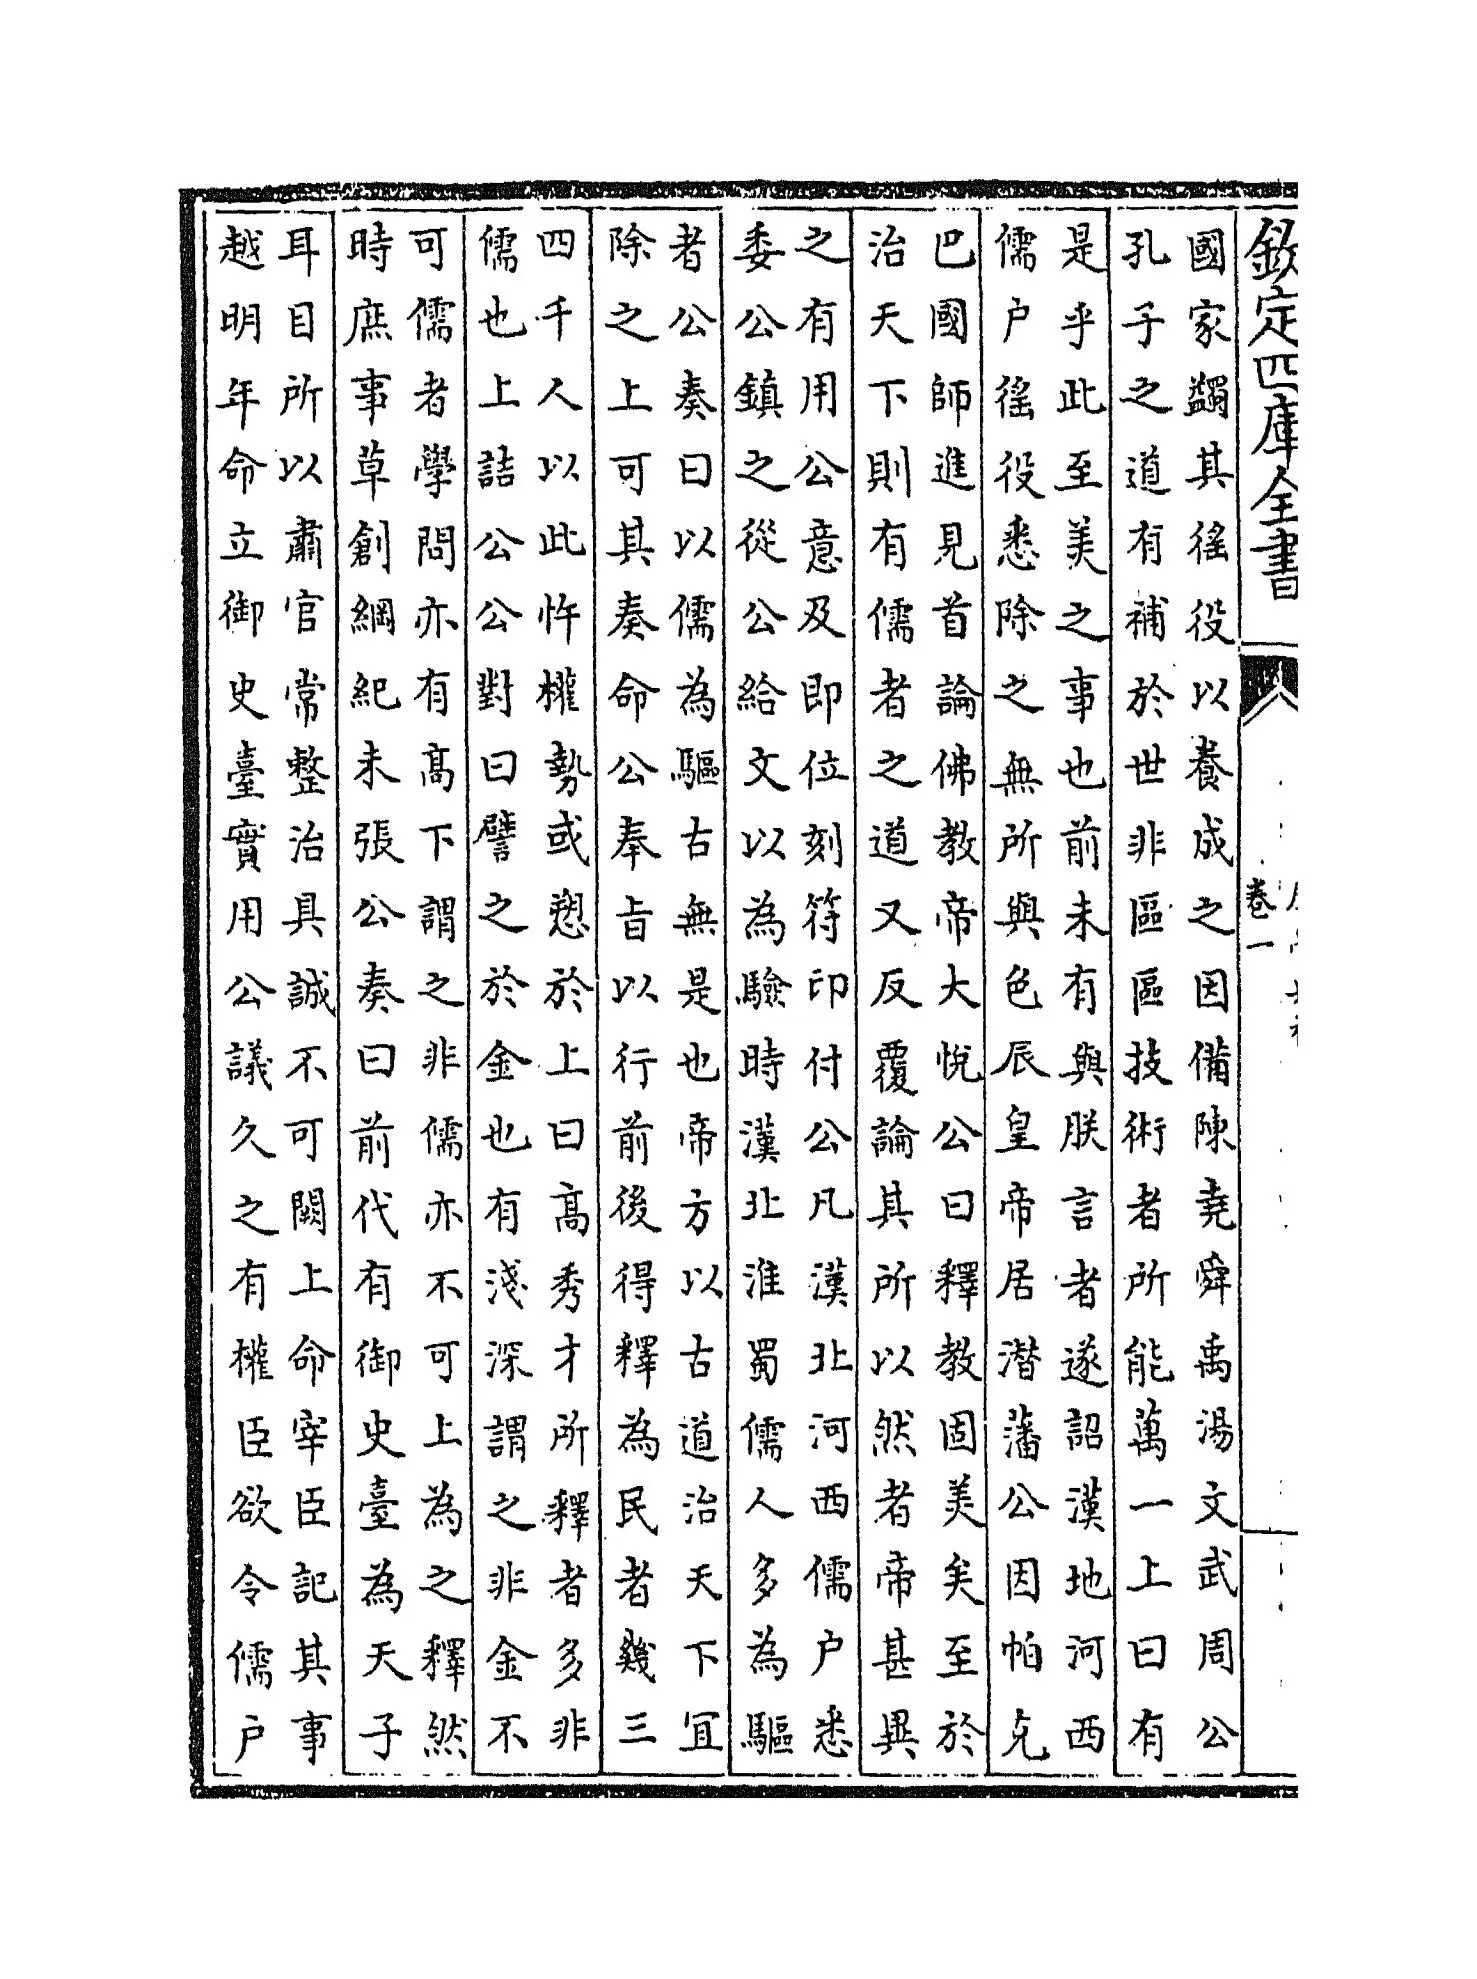 欽定四庫全書
卷一
國家蠲其徭役以養成之因備陳堯舜禹湯文武周公
孔子之道有補於世非區區技術者所能萬一上曰有
是乎此至美之事也前未有與朕言者遂詔漢地河西
儒户徭役悉除之無所與色辰皇帝居潛藩公因帕克
巴國師進見首論佛教帝大悅公曰釋教固美矣至於
治天下則有儒者之道又反覆論其所以然者帝甚異
之有用公意及即位刻符印付公凡漢北河西儒户悉
委公鎮之從公給文以為驗時漢北淮蜀儒人多為驅
者公奏曰以儒為驅古無是也帝方以古道治天下宜
除之上可其奏命公奉旨以行前後得釋為民者幾三
四千人以此忤權勢或愬於上曰高秀才所釋者多非
儒也上詰公公對曰譬之於金也有淺深謂之非金不
可儒者學問亦有高下謂之非儒亦不可上為之釋然
時庶事草創綱紀未張公奏曰前代有御史臺為天子
耳目所以肅官常整治具誠不可闕上命宰臣記其事
越明年命立御史臺實用公議久之有權臣欲令儒户